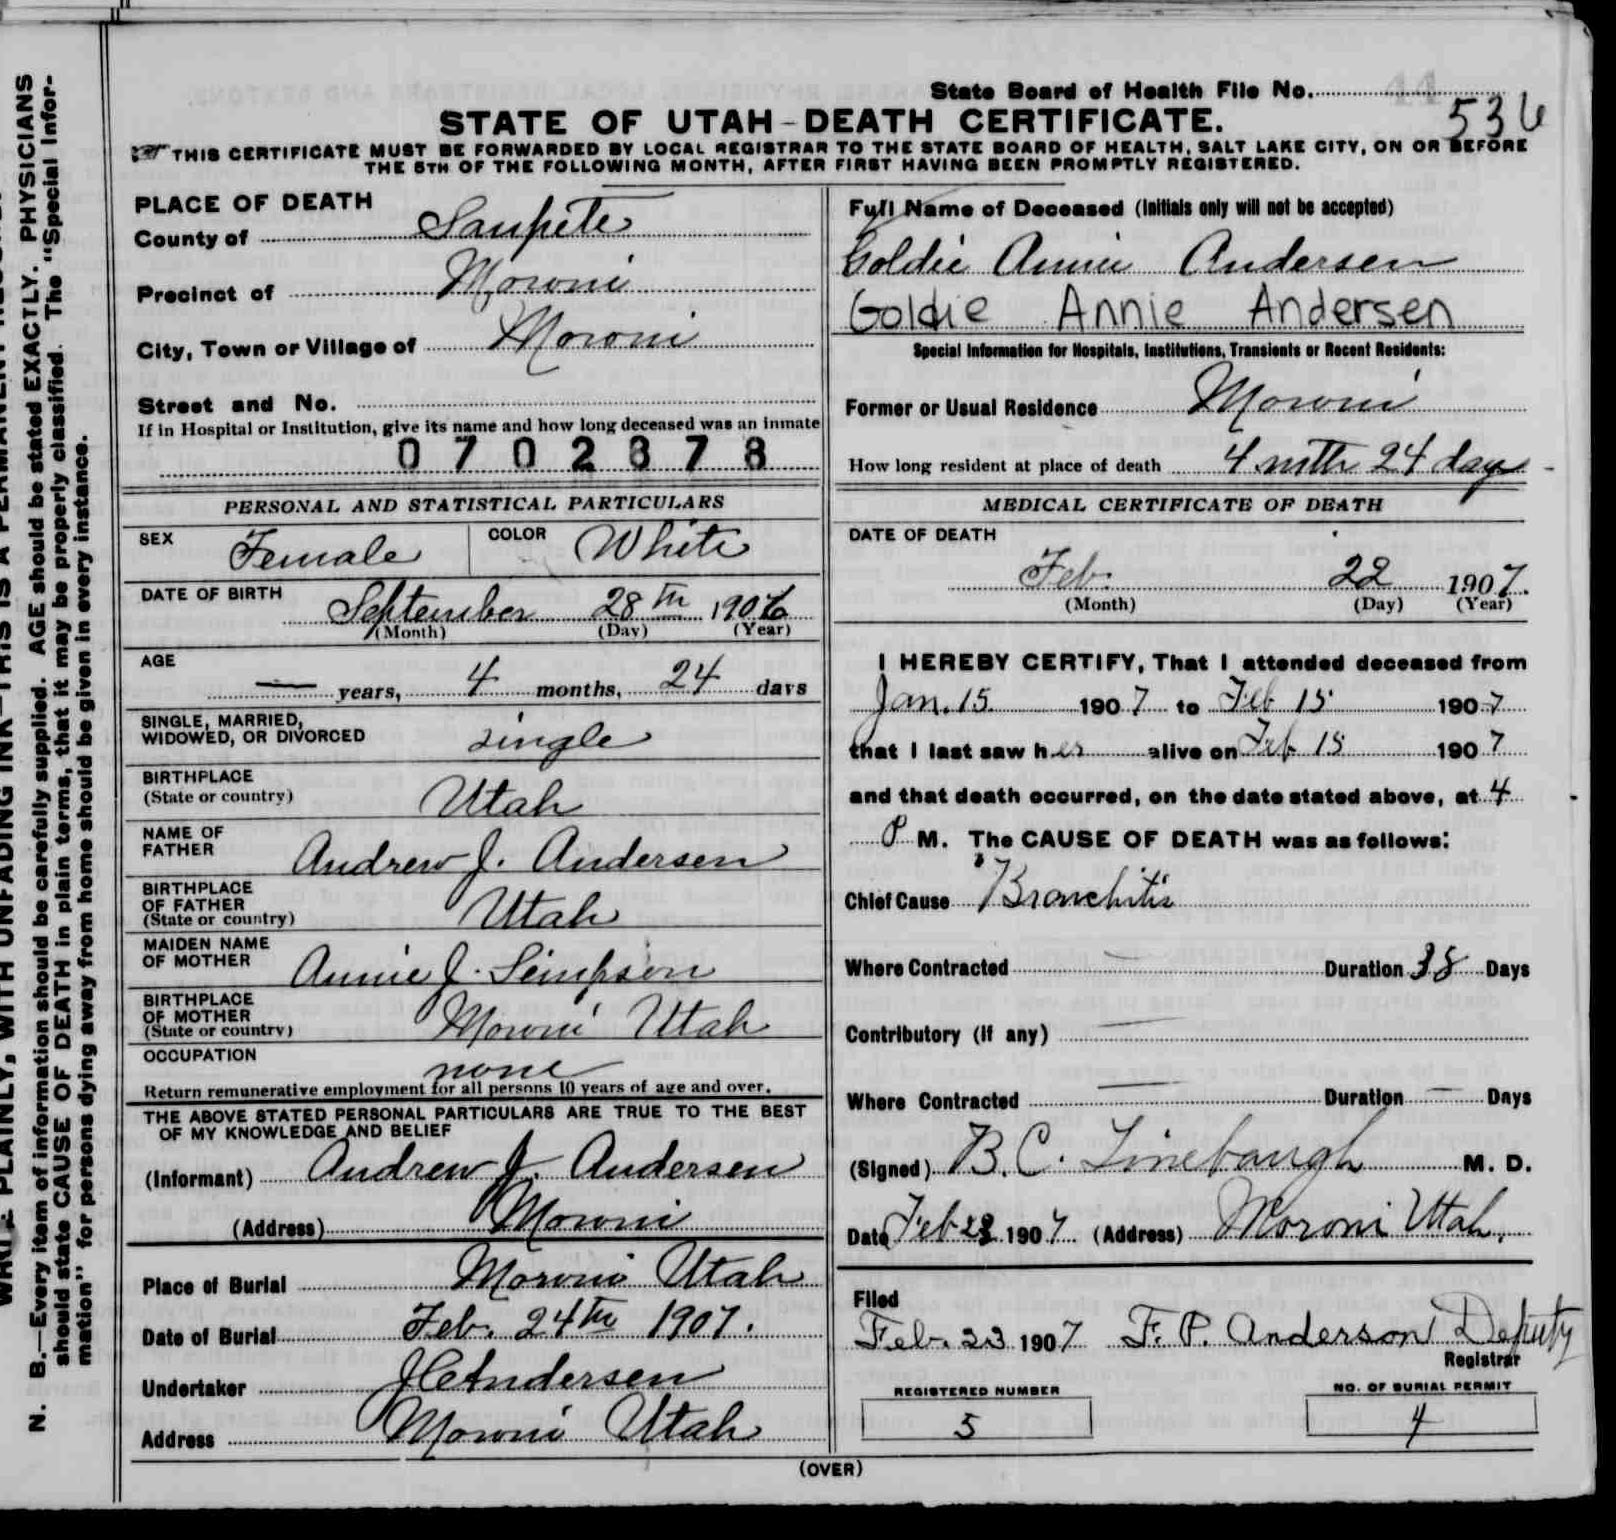 State Board of Health File No. 44
536
STATE OF UTAH-DEATH CERTIFICATE.
THIS CERTIFICATE MUST BE FORWARDED BY LOCAL REGISTRAR TO THE STATE BOARD OF HEALTH, SALT LAKE CITY, ON OR BEFORE
THE 5TH OF THE FOLLOWING MONTH, AFTER FIRST HAVING BEEN PROMPTLY REGISTERED.
PLACE OF DEATH
County of Sanpete
Precinct of Moroni
City, Town or Village of Moroni
Street and No.
If in Hospital or Institution, give its name and how long deceased was an inmate
0702378
PERSONAL AND STATISTICAL PARTICULARS
SEX Female COLOR White
DATE OF BIRTH
September 28th 1906
(Month) (Day) (Year)
AGE
— years, 4 months, 24 days
SINGLE, MARRIED,
WIDOWED, OR DIVORCED single
BIRTHPLACE
(State or country) Utah
NAME OF
FATHER Andrew J. Andersen
BIRTHPLACE
OF FATHER
(State or country) Utah
MAIDEN NAME
OF MOTHER Annie J. Simpson
BIRTHPLACE
OF MOTHER
(State or country) Moroni Utah
OCCUPATION
none
Return remunerative employment for all persons 10 years of age and over.
THE ABOVE STATED PERSONAL PARTICULARS ARE TRUE TO THE BEST
OF MY KNOWLEDGE AND BELIEF
(Informant) Andrew J. Andersen
(Address) Moroni
Place of Burial Moroni Utah
Date of Burial Feb. 24th 1907.
Undertaker J C Andersen
Address Moroni Utah
Full Name of Deceased (Initials only will not be accepted)
Goldie Annie Andersen
Goldie Annie Andersen
Special Information for Hospitals, Institutions, Transients or Recent Residents:
Former or Usual Residence Moroni
How long resident at place of death 4 mths 24 days
MEDICAL CERTIFICATE OF DEATH
DATE OF DEATH
Feb. 22 1907.
(Month) (Day) (Year)
I HEREBY CERTIFY, That I attended deceased from
Jan. 15 1907 to Feb 15 1907
that I last saw her alive on Feb 15 1907
and that death occurred, on the date stated above, at 4
P M. The CAUSE OF DEATH was as follows:
Chief Cause Bronchitis
Where Contracted — Duration 38 Days
Contributory (if any) —
Where Contracted — Duration — Days
(Signed) B. C. Linebaugh M. D.
Date Feb 23 1907 (Address) Moroni Utah.
Filed
Feb. 23 1907 F. P. Anderson Deputy
Registrar
REGISTERED NUMBER
5
NO. OF BURIAL PERMIT
4
(OVER)
N. B.—Every item of information should be carefully supplied. AGE should be stated EXACTLY. PHYSICIANS
should state CAUSE OF DEATH in plain terms, that it may be properly classified. The "Special Infor-
mation" for persons dying away from home should be given in every instance.